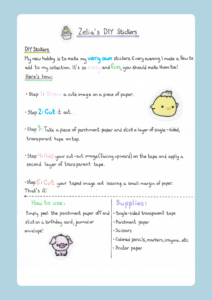 Zelia's DIY Stickers
DIY Stickers
My new hobby is to make my very own stickers. Every evening I make a few to
add to my collection. It's so easy and fun, you should make them too!
Here's how:
• Step 1: Draw a cute image on a piece of paper.
• Step 2: Cut it out.
• Step 3: Take a piece of parchment paper and stick a layer of single-sided,
transparent tape on top.
• Step 4: Add your cut-out image (facing upward) on the tape and apply a
second layer of transparent tape.
• Step 5: Cut your taped image leaving a small margin of paper.
That's it!
How to use:
Simply peel the parchment paper off and
stick on a birthday card, journal or
envelope!
Supplies:
• Single-sided transparent tape
• Parchment paper
• Scissors
• Colored pencils, markers, crayons...etc
• Printer paper